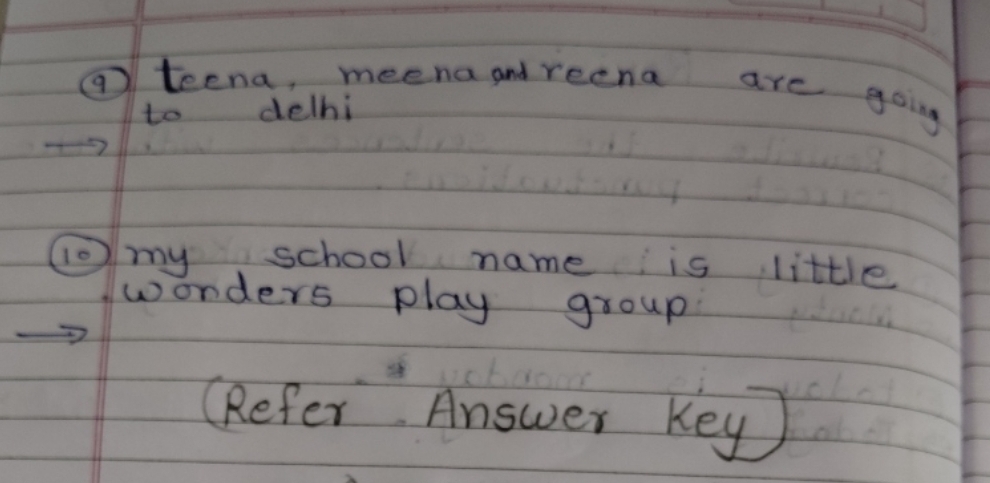 9 teena, meena and reena are going
to delhi
→
10 my school name is little
wonders play group
→
(Refer Answer Key)